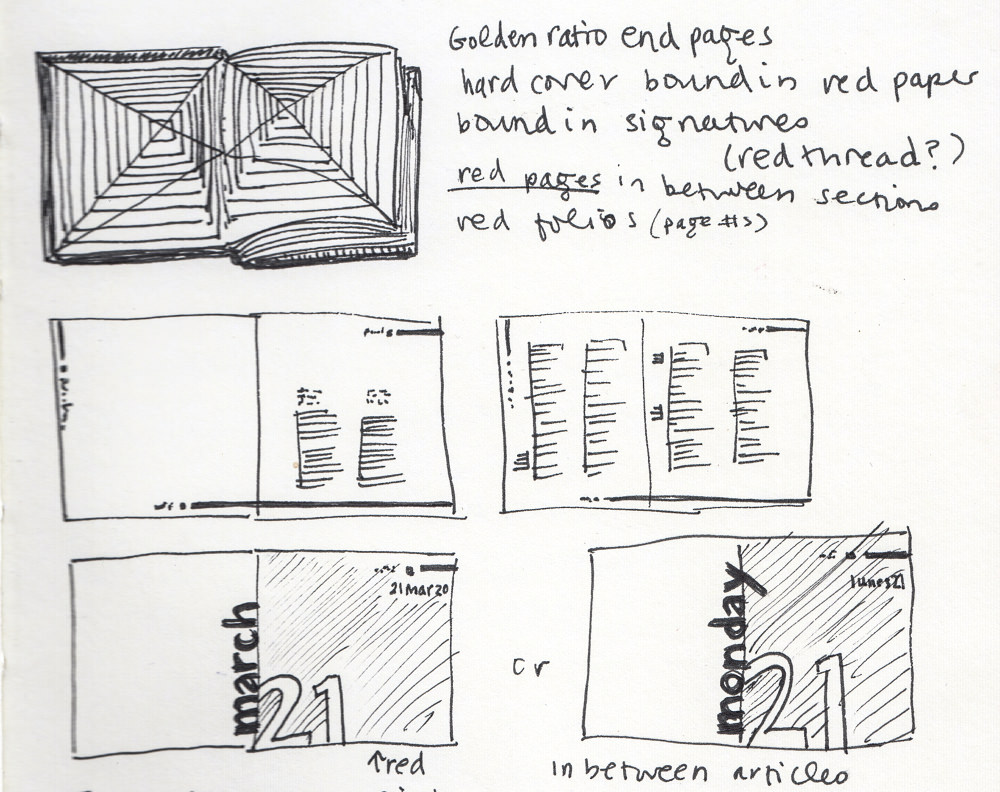 Golden ratio end pages
hard cover bound in red paper
bound in signatures
(red thread?)
red pages in between sections
red folios (page #s)
21 Mar 20
march
21
↑red
or
lunes 21
monday
21
in between articles